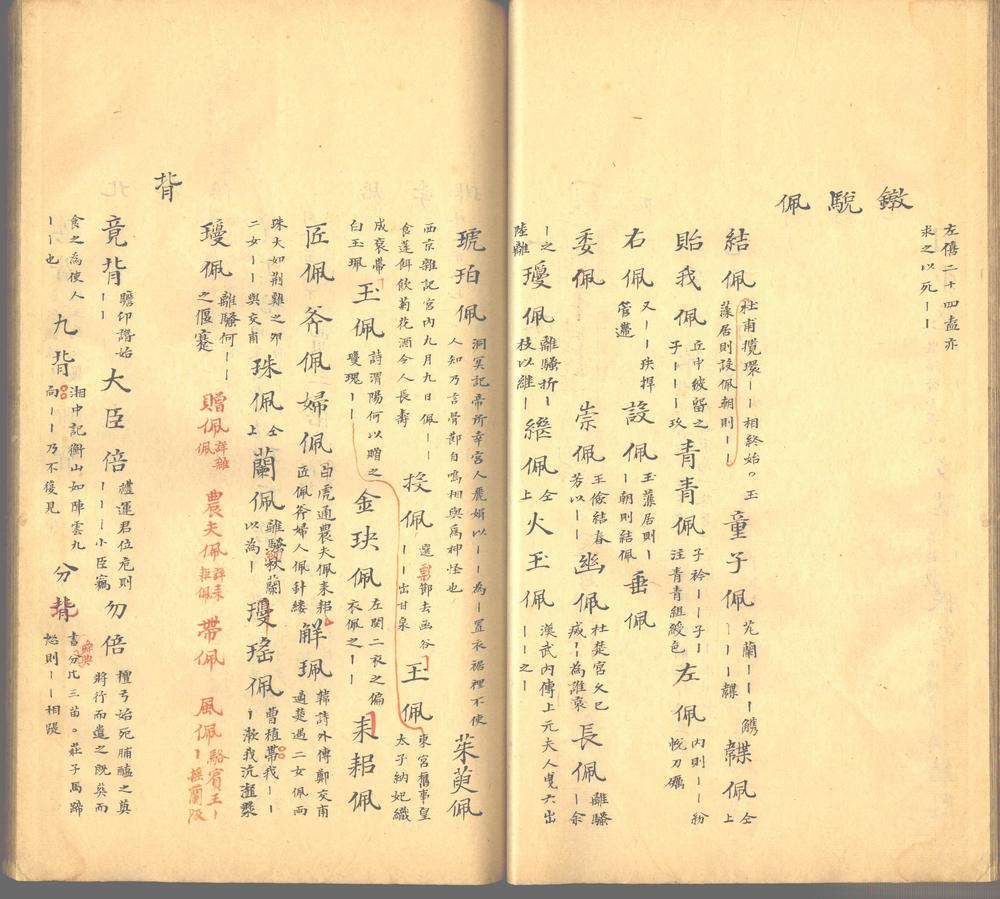 左僖二十四盍亦
求之以死｜｜
鐓駾佩
結佩 杜甫攬環｜相終始。玉
藻居則設佩朝則｜｜ 童子佩 芄蘭｜｜觿
｜｜韘 韘佩 仝上
貽我佩 丘中彼留之
子｜｜｜玖 青青佩 子衿｜｜子｜
注青青組綬色 左佩 內則｜｜紛
帨刀礪
右佩 又｜｜玦捍
管遰 設佩 玉藻居則｜
｜朝則結佩 垂佩
委佩 崇佩 王儉結春
芳以｜｜ 幽佩 杜楚宮久已
戚｜為誰哀 長佩 離騷
｜余
｜之
陸離 瓊佩 離騷折｜
枝以維｜ 繼佩 仝
上 火玉佩 漢武內傳上元夫人曳六出
｜｜｜之｜
琥珀佩 洞冥記帝所幸宮人麗娟以｜｜為｜置衣裾裡不使
人知乃言骨節自鳴相與為神怪也 茱萸佩
西京雜記宮內九月九日佩｜｜
食蓬餌飲菊花酒令人長壽 授佩 選節去函谷
｜｜出甘泉 玉佩 東宮舊事皇
太子納妃織
成袞帶
白玉珮 玉佩 詩渭陽何以贈之
瓊瑰｜｜ 金玦佩 左閔二衣之偏
衣佩之｜｜ 耒耜佩
匠佩斧佩婦佩 白虎通農夫佩耒耜
匠佩斧婦人佩針縷 解珮 韓詩外傳鄭交甫
適楚遇二女佩兩
珠大如荊雞之卵
二女｜｜與交甫 珠佩 仝
上 蘭佩 離騷紉秋蘭
以為｜ 瓊瑤佩 曹植帶我｜｜
漱我沆瀣漿
瓊佩 離騷何｜｜
之偃蹇 贈佩 詳雜
佩 農夫佩 詳耒
耜佩 帶佩 風佩 駱賓王｜
｜搖蘭阪
背
竟背 瞻卬譖始
｜｜ 大臣倍 禮運君位危則
｜｜｜小臣竊 勿倍 檀弓始死脯醢之奠
將行而遣之既葬而
食之為使人
｜｜也 九背 湘中記衡山如陣雲九
向｜｜乃不復見 分背 書分北三苗。莊子馬蹄
怒則｜｜相踶